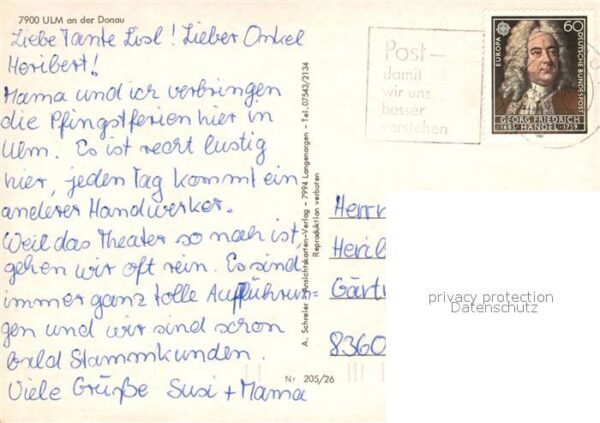 7900 ULM an der Donau
Liebe Tante Lisl! Lieber Onkel
Heribert!
Mama und ich verbringen
die Pfingstferien hier in
Ulm. Es ist recht lustig
hier, jeden Tag kommt ein
anderer Handwerker.
Weil das Theater so nah ist,
gehen wir oft rein. Es sind
immer ganz tolle Aufführun=
gen und wir sind schon
bald Stammkunden.
Viele Grüße Susi + Mama
A. Schreier - Ansichtskarten-Verlag - 7994 Langenargen - Tel. 07543/2134
Reproduktion verboten
Nr 205/26
Post-
damit
wir uns
besser
verstehen
EUROPA
60
DEUTSCHE BUNDESPOST
GEORG FRIEDRICH
1685 HÄNDEL 1759
Herrn
Herib
Gärtn
8360
privacy protection
Datenschutz